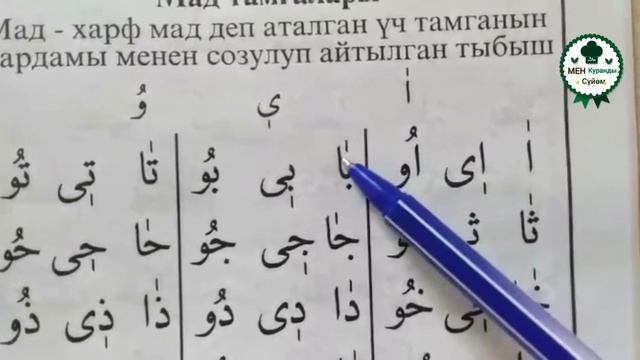 Мад тамгалары
Мад - харф мад деп аталган үч тамганын
ардамы менен созулуп айтылган тыбыш
МЕН Куранды Сүйөм
اٰ ىٖ وُ
اٰ اٖى اُو بٰا بٖى بُو تٰا تٖى تُو
ثٰا جٰا جٖى جُو حٰا حٖى حُو
خُو دٰا دٖى دُو ذٰا ذٖى ذُو